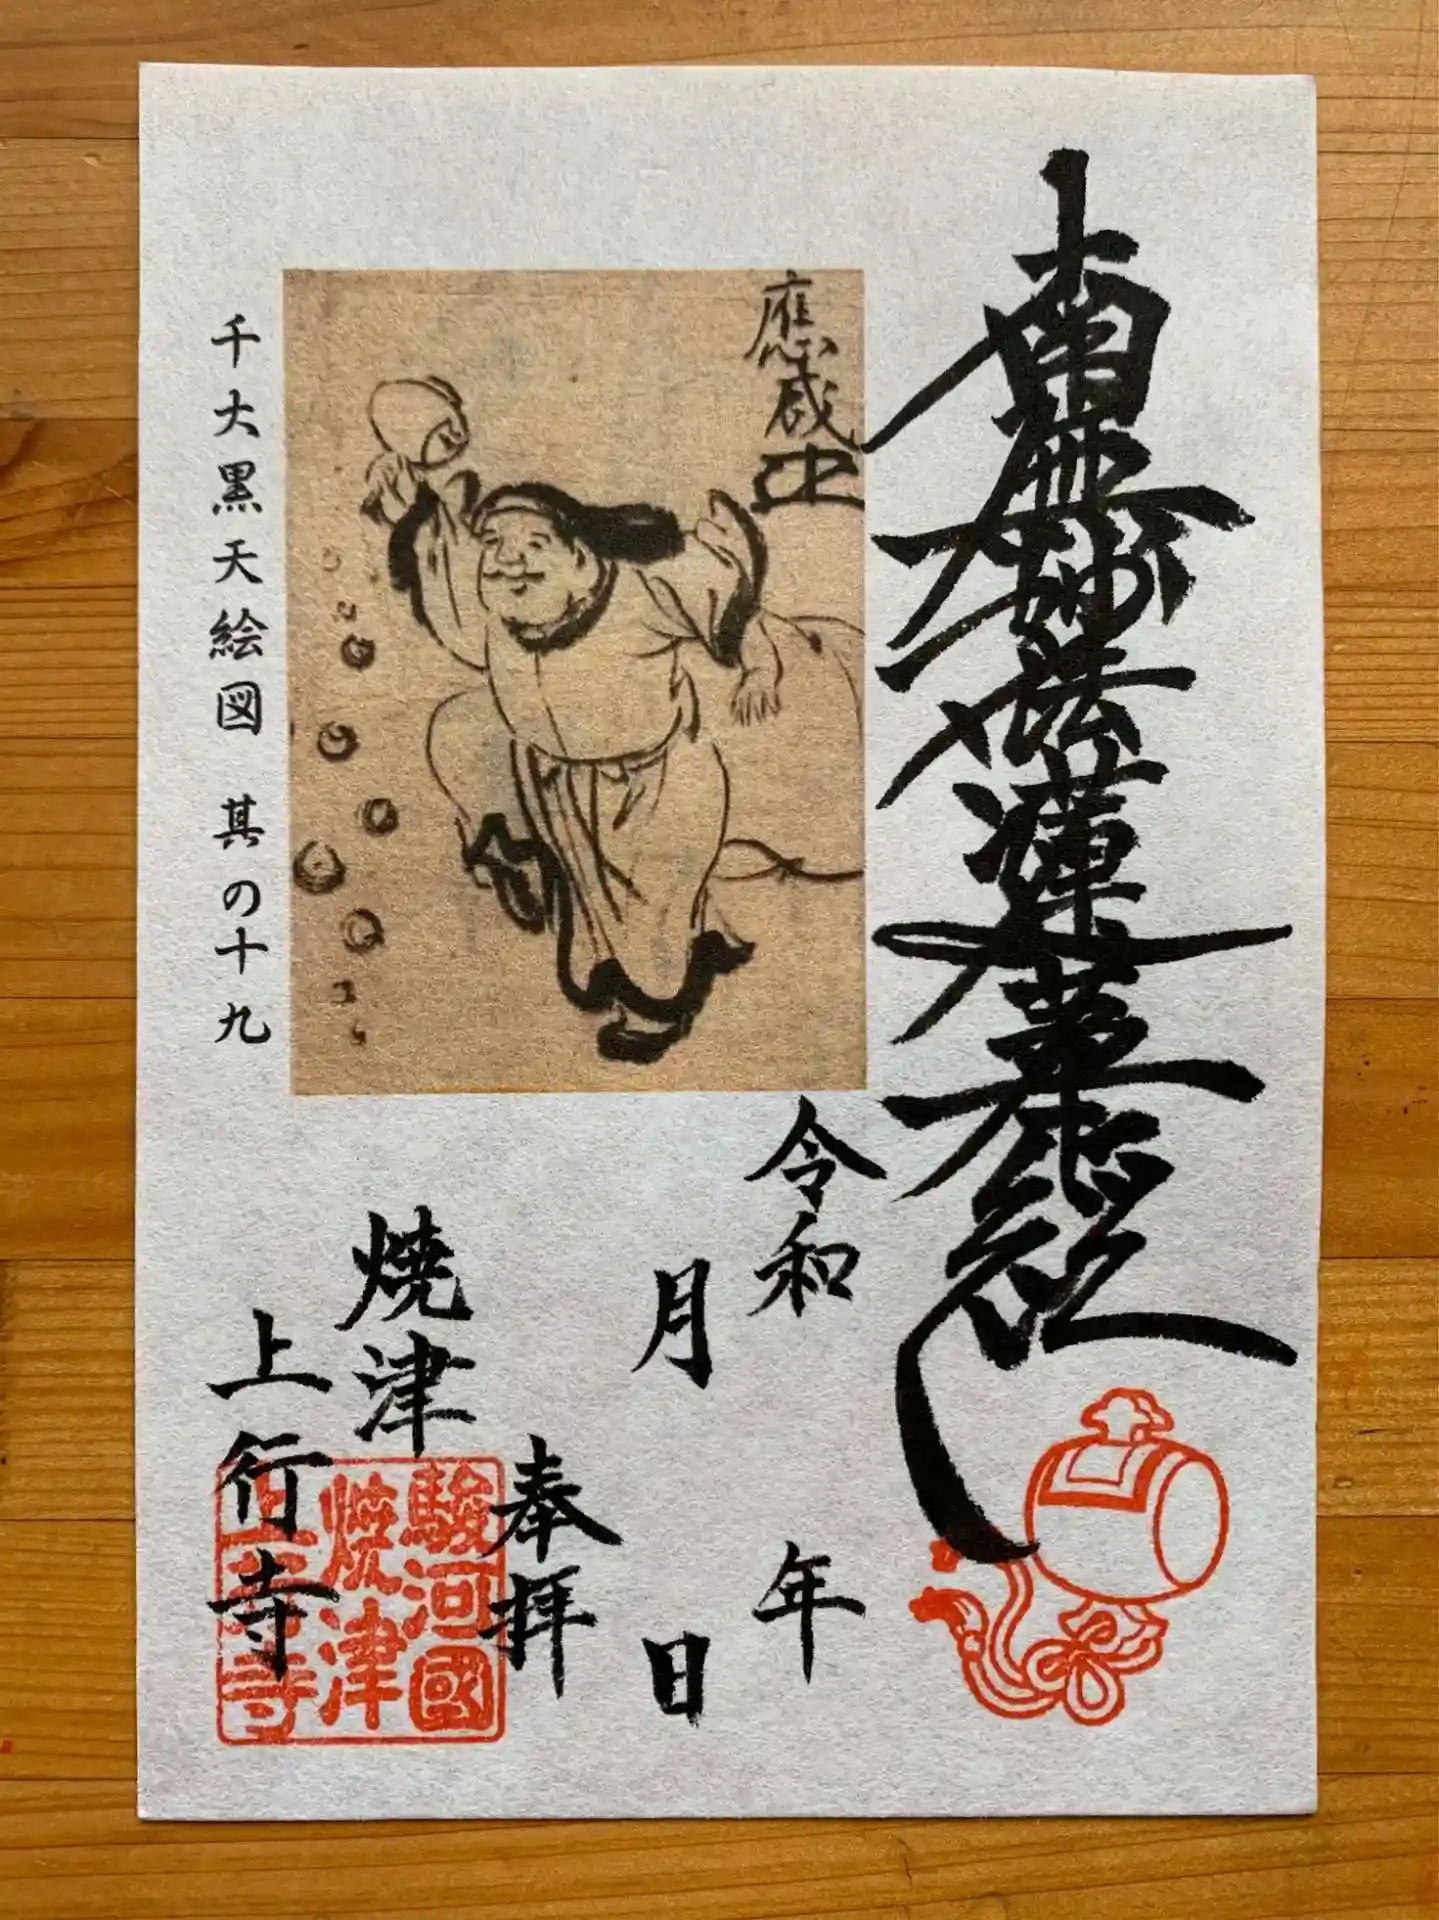 南無妙法蓮華経
應感
令和 年
月 日
奉拝
焼津
上行寺
駿河國
焼津
上行寺
千大黒天絵図 其の十九